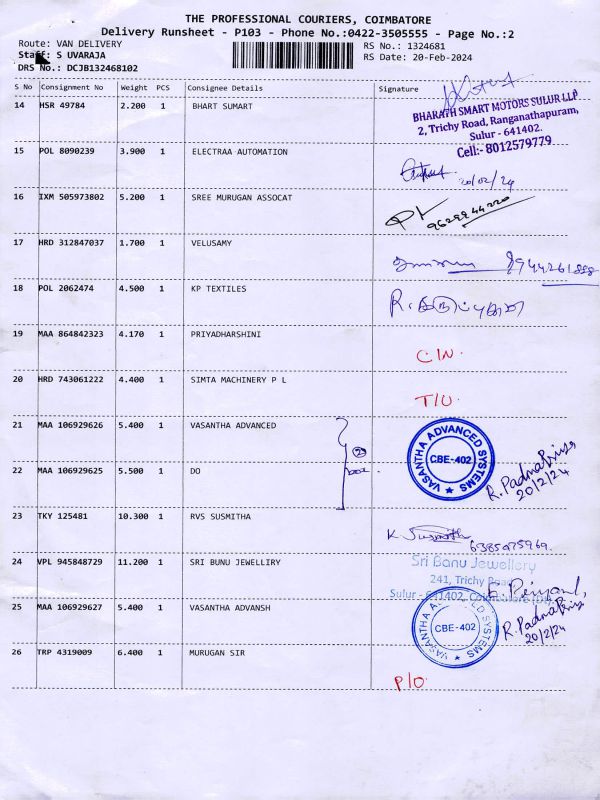 THE PROFESSIONAL COURIERS, COIMBATORE
Delivery Runsheet - P103 - Phone No.:0422-3505555 - Page No.:2
Route: VAN DELIVERY
RS No.: 1324681
Staff: S UVARAJA
RS Date: 20-Feb-2024
DRS No.: DCJB132468102
S No Consignment No Weight PCS Consignee Details Signature
14 HSR 49784 2.200 1 BHART SUMART
BHARATH SMART MOTORS SULUR LLP
2, Trichy Road, Ranganathapuram,
Sulur - 641402.
Cell:- 8012579779
15 POL 8090239 3.900 1 ELECTRAA AUTOMATION
20/02/24
16 IXM 505973802 5.200 1 SREE MURUGAN ASSOCAT
9629944220
17 HRD 312847037 1.700 1 VELUSAMY
18 POL 2062474 4.500 1 KP TEXTILES
19 MAA 864842323 4.170 1 PRIYADHARSHINI
C/N.
20 HRD 743061222 4.400 1 SIMTA MACHINERY P L
T/U.
21 MAA 106929626 5.400 1 VASANTHA ADVANCED
VASANTHA ADVANCED SYSTEMS
CBE-402
22 MAA 106929625 5.500 1 DO
R. Padmapriya
20/2/24
23 TKY 125481 10.300 1 RVS SUSMITHA
K Susmitha
6385075969.
24 VPL 945848729 11.200 1 SRI BUNU JEWELLIRY
Sri Banu Jewellery
241, Trichy Road
Sulur - 641402, Coimbatore (Dt)
25 MAA 106929627 5.400 1 VASANTHA ADVANSH
VASANTHA ADVANCED SYSTEMS
CBE-402
R. Padmapriya
20/2/24
26 TRP 4319009 6.400 1 MURUGAN SIR
P/O.